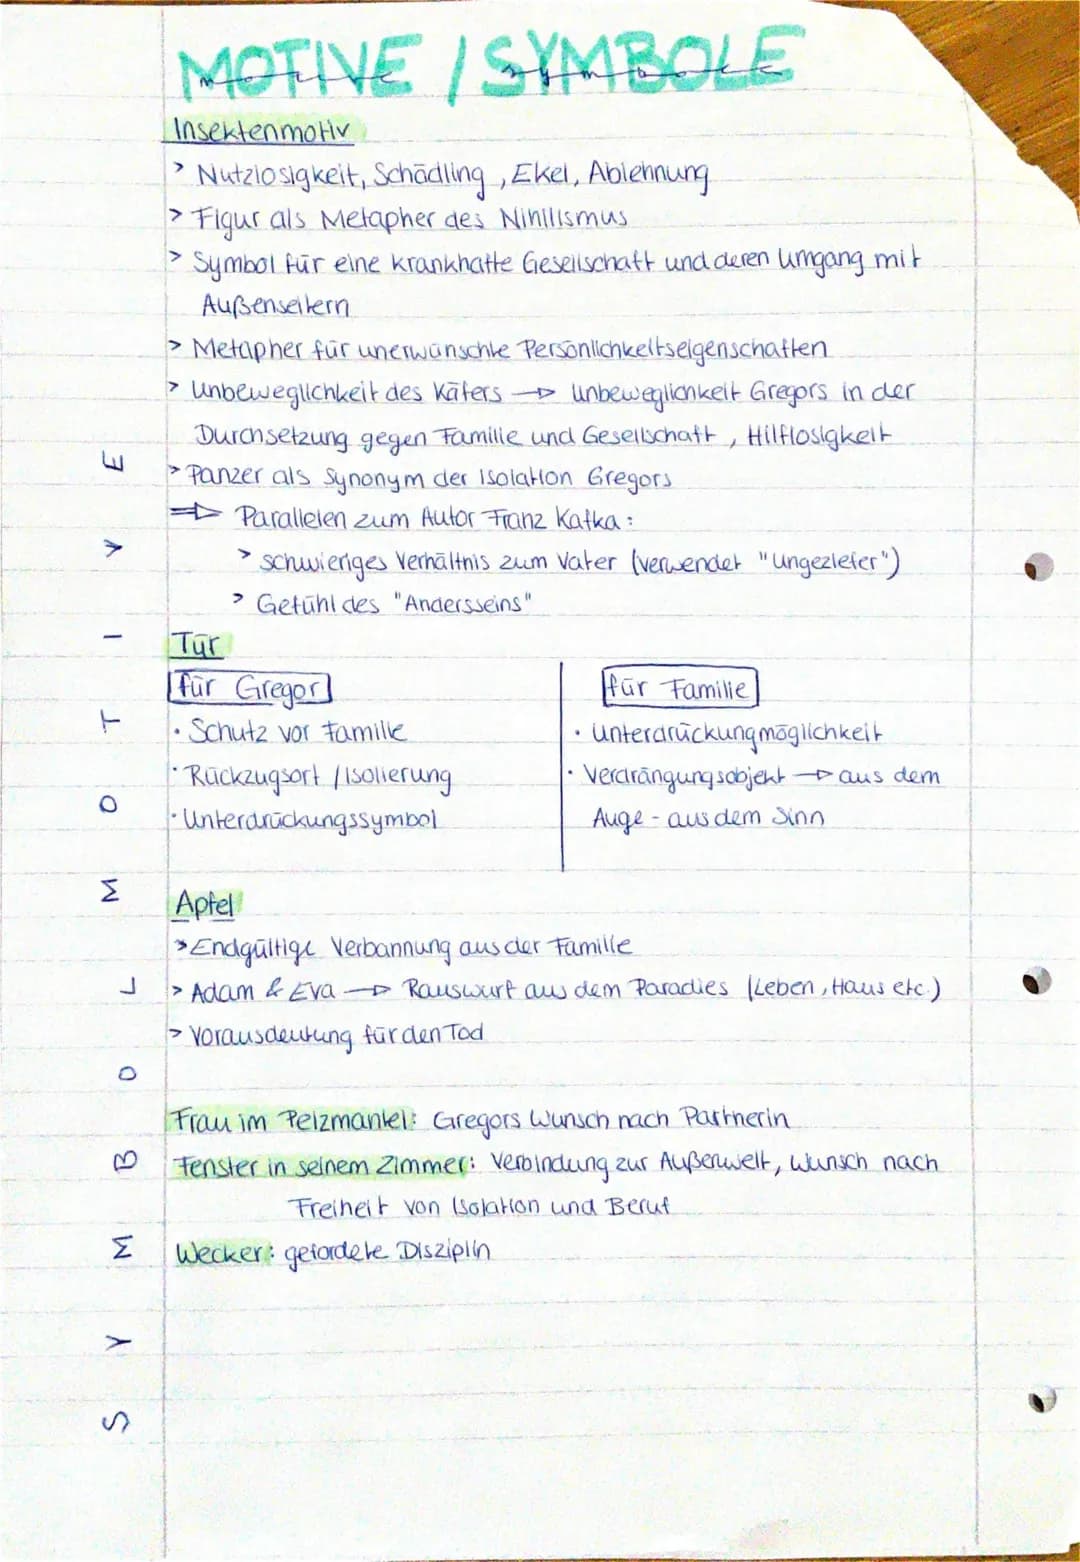 MOTIVE / SYMBOLE
Insektenmotiv
> Nutzlosigkeit, Schädling, Ekel, Ablehnung
> Figur als Metapher des Nihilismus
> Symbol für eine krankhafte Gesellschaft und deren Umgang mit
Außenseitern
> Metapher für unerwünschte Persönlichkeitseigenschaften
> Unbeweglichkeit des Käfers → Unbeweglichkeit Gregors in der
Durchsetzung gegen Familie und Gesellschaft, Hilflosigkeit
> Panzer als Synonym der Isolation Gregors
⇒ Parallelen zum Autor Franz Kafka:
> schwieriges Verhältnis zum Vater (verwendet "Ungeziefer")
> Gefühl des "Andersseins"
Tür
für Gregor
· Schutz vor Familie
· Rückzugsort / Isolierung
· Unterdrückungssymbol
für Familie
· Unterdrückungmöglichkeit
· Verdrängungsobjekt → aus dem
Auge - aus dem Sinn
Apfel
> Endgültige Verbannung aus der Familie
> Adam & Eva → Rauswurf aus dem Paradies (Leben, Haus etc.)
> Vorausdeutung für den Tod
Frau im Pelzmantel: Gregors Wunsch nach Partnerin
Fenster in seinem Zimmer: Verbindung zur Außenwelt, Wunsch nach
Freiheit von Isolation und Beruf
Wecker: gefordete Disziplin
SYMBOL MOTIVE